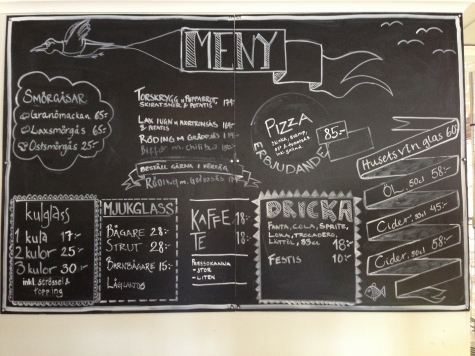 MENY
SMÖRGÅSAR
Granömackan 65:-
Laxsmörgås 65:-
Ostsmörgås 25:-
TORSKRYGG M PEPPARROT,
SKIRAT SMÖR & POTATIS
LAX
& POTATIS
RÖDING M
BIFFAR M CHILI
BESTÄLL GÄRNA I FÖRVÄG
RÖDING M.
PIZZA
85:-
ERBJUDANDE
Husets vin glas 60:-
ÖL, 50cl 58:-
Cider, 50cl 45:-
Cider, 50cl 58:-
kulglass
1 kula 17:-
2 kulor 25:-
3 kulor 30:-
inkl. strössel &
topping
MJUKGLASS
BÄGARE 28:-
STRUT 28:-
BARNBÄGARE 15:-
LÅGLAKTOS
KAFFE 18:-
TE 18:-
PRESSOKANNA
- STOR
- LITEN
DRICKA
FANTA, COLA, SPRITE,
LOKA, TROCADERO,
LÄTTÖL, 33CL 18:-
FESTIS 10:-